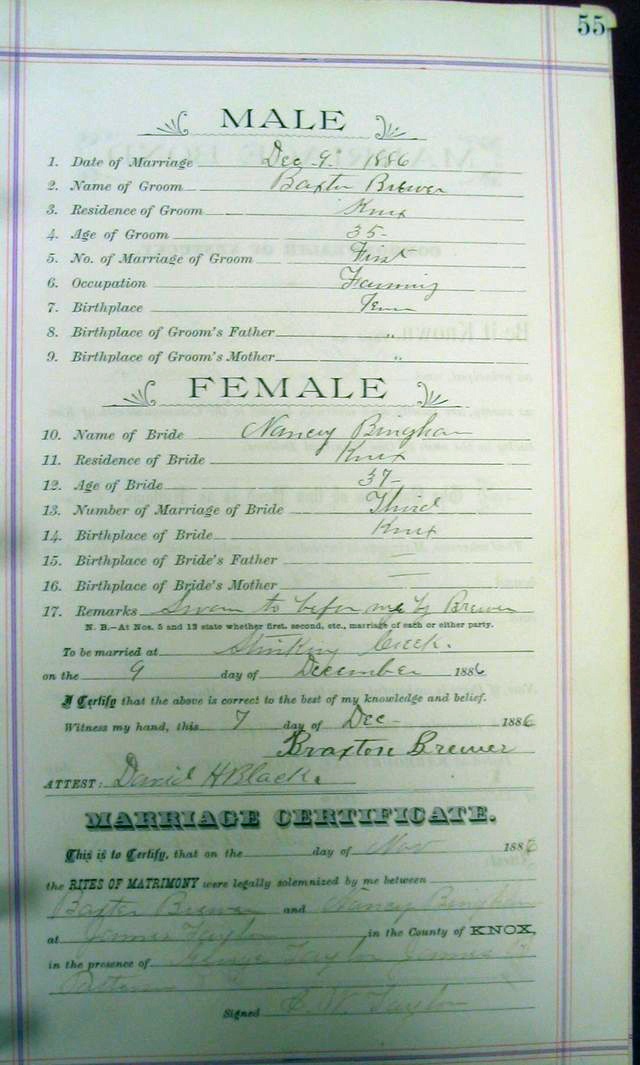 55
MALE
1. Date of Marriage Dec 9 1886
2. Name of Groom Baxter Brewer
3. Residence of Groom Knox
4. Age of Groom 35-
5. No. of Marriage of Groom First
6. Occupation Farming
7. Birthplace Tenn
8. Birthplace of Groom's Father "
9. Birthplace of Groom's Mother "
FEMALE
10. Name of Bride Nancy Bingham
11. Residence of Bride Knox
12. Age of Bride 37-
13. Number of Marriage of Bride Third
14. Birthplace of Bride Knox
15. Birthplace of Bride's Father —
16. Birthplace of Bride's Mother —
17. Remarks Sworn to before me by Brewer
N. B.—At Nos. 5 and 13 state whether first, second, etc., marriage of each or either party.
To be married at Stinking Creek.
on the 9 day of December 1886
I Certify that the above is correct to the best of my knowledge and belief.
Witness my hand, this 7 day of Dec- 1886
Braxton Brewer
ATTEST: David H Black
MARRIAGE CERTIFICATE.
This is to Certify, that on the day of Nov 188
the RITES OF MATRIMONY were legally solemnized by me between
Baxter Brewer and Nancy Bingham
at James Taylor in the County of KNOX,
in the presence of George Taylor James
Signed C. W. Taylor